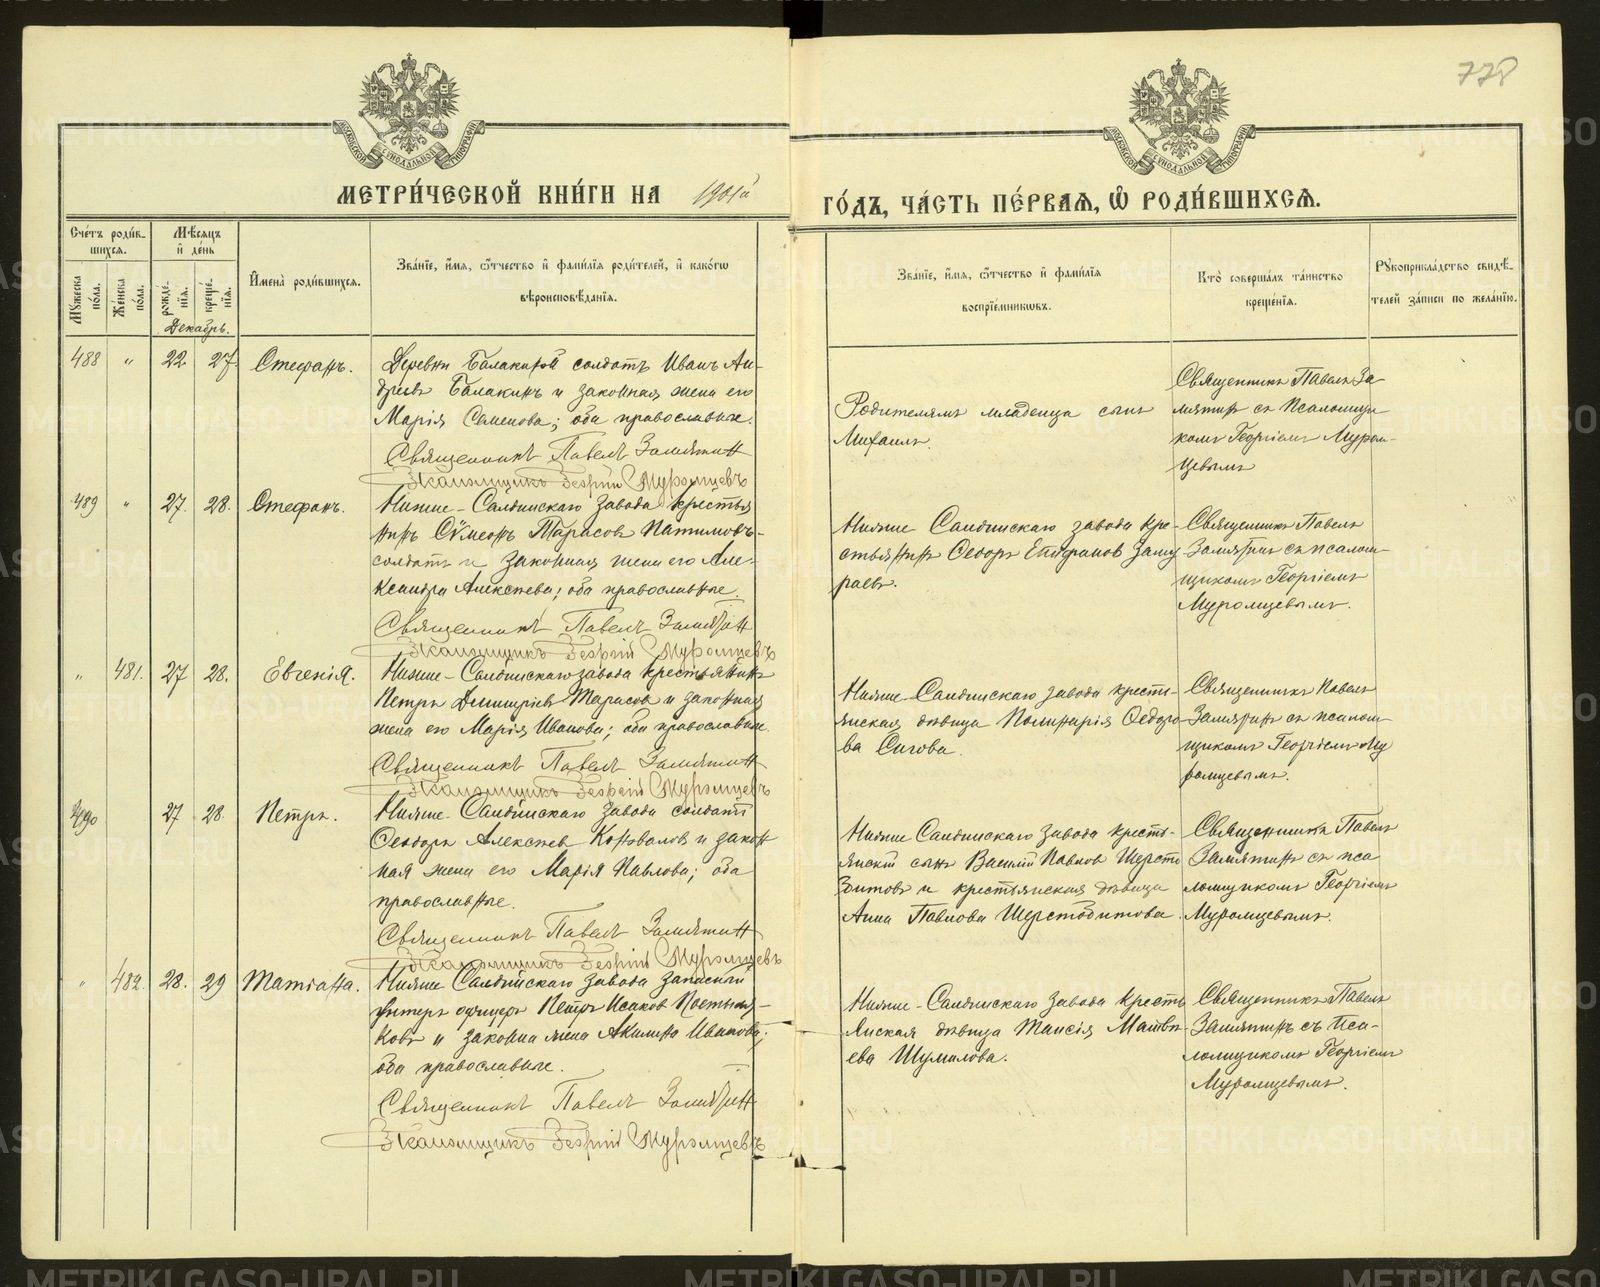 778
МОСКОВСКОЙ СѴНОДАЛЬНОЙ ТИПОГРАФІИ
МОСКОВСКОЙ СѴНОДАЛЬНОЙ ТИПОГРАФІИ
МЕТРИ́ЧЕСКОЙ КНИ́ГИ НА 1901й
ГО́ДЪ, ЧА́СТЬ ПЕ́РВАѦ, Ѡ҆ РОДИ́ВШИХСѦ.
Сче́тъ роди́вшихсѧ.
Мꙋ́жеска по́ла.
Же́нска по́ла.
Мѣ́сѧцъ и҆ де́нь
рожде́нїѧ.
креще́нїѧ.
Декабрь.
И҆мена̀ роди́вшихсѧ.
Зва́нїе, и҆́мѧ, ѻ҆́тчество и҆ фами́лїѧ роди́телей, и҆ како́гѡ
вѣроисповѣ́данїѧ.
Зва́нїе, и҆́мѧ, ѻ҆́тчество и҆ фами́лїѧ
воспрїе́мникѡвъ.
Кто̀ соверша́лъ та́инство
креще́нїѧ.
Рꙋкоприкла́дство свидѣ́-
телей за́писи по жела́нїю.
488 " 22 27 Стефанъ.
Деревни Балакиной солдатъ Иванъ Ан-
дреевъ Балакинъ и законная жена его
Марія Семенова; оба православные.
Священникъ Павелъ Замятинъ
Псаломщикъ Георгій Муромцевъ
Родителямъ младенца сынъ
Михаилъ.
Священникъ Павелъ За-
мятинъ съ псаломщи-
комъ Георгіемъ Муром-
цевымъ
489 " 27. 28. Стефанъ.
Нижне-Салдинскаго завода кресть
нинъ Сѵмеонъ Тарасовъ
солдатъ и законная жена его Але-
ксандра Алексѣева; оба православные.
Священникъ Павелъ Замятинъ
Псаломщикъ Георгій Муромцевъ
Нижне Салдинскаго завода кре-
стьянинъ Ѳеодоръ Епифановъ Заму
раевъ.
Священникъ Павелъ
Замятинъ съ псалом-
щикомъ Георгіемъ
Муромцевымъ.
" 481. 27 28. Евгенія.
Нижне-Салдинскаго завода крестьянинъ
Петръ Димитріевъ Тарасовъ и законная
жена его Марія Иванова; оба православные.
Священникъ Павелъ Замятинъ
Псаломщикъ Георгій Муромцевъ
Нижне-Салдинскаго завода кресть-
янская дѣвица Ѳеодоро
ва Сигова.
Священникъ Павелъ
Замятинъ съ псалом-
щикомъ Георгіемъ Му
ромцевымъ.
490 27 28. Петръ.
Нижне-Салдинскаго завода солдатъ
Ѳеодоръ Алексѣевъ Коновалов и закон
ная жена его Марія Павлова; оба
православные.
Священникъ Павелъ Замятинъ
Псаломщикъ Георгій Муромцевъ
Нижне Салдинскаго завода кресть-
янскій сынъ Василій Павлов Шерсто
битовъ и крестьянская дѣвица
Анна Павлова Шерстобитова.
Священникъ Павелъ
Замятинъ съ пса
ломщикомъ Георгіемъ
Муромцевымъ.
" 482. 28. 29 Татіана.
Нижне Салдинскаго завода запасный
унтеръ офицеръ Петръ Исаков
ковъ и законна жена Акилина Иванова;
оба православные.
Священникъ Павелъ Замятинъ
Псаломщикъ Георгій Муромцевъ
Нижне-Салдинскаго завода кресть
янская дѣвица Таисія Матвѣ
ева Шумилова.
Священникъ Павелъ
Замятинъ съ пса-
ломщикомъ Георгіемъ
Муромцевымъ.
METRIKI.GASO-URAL.RU